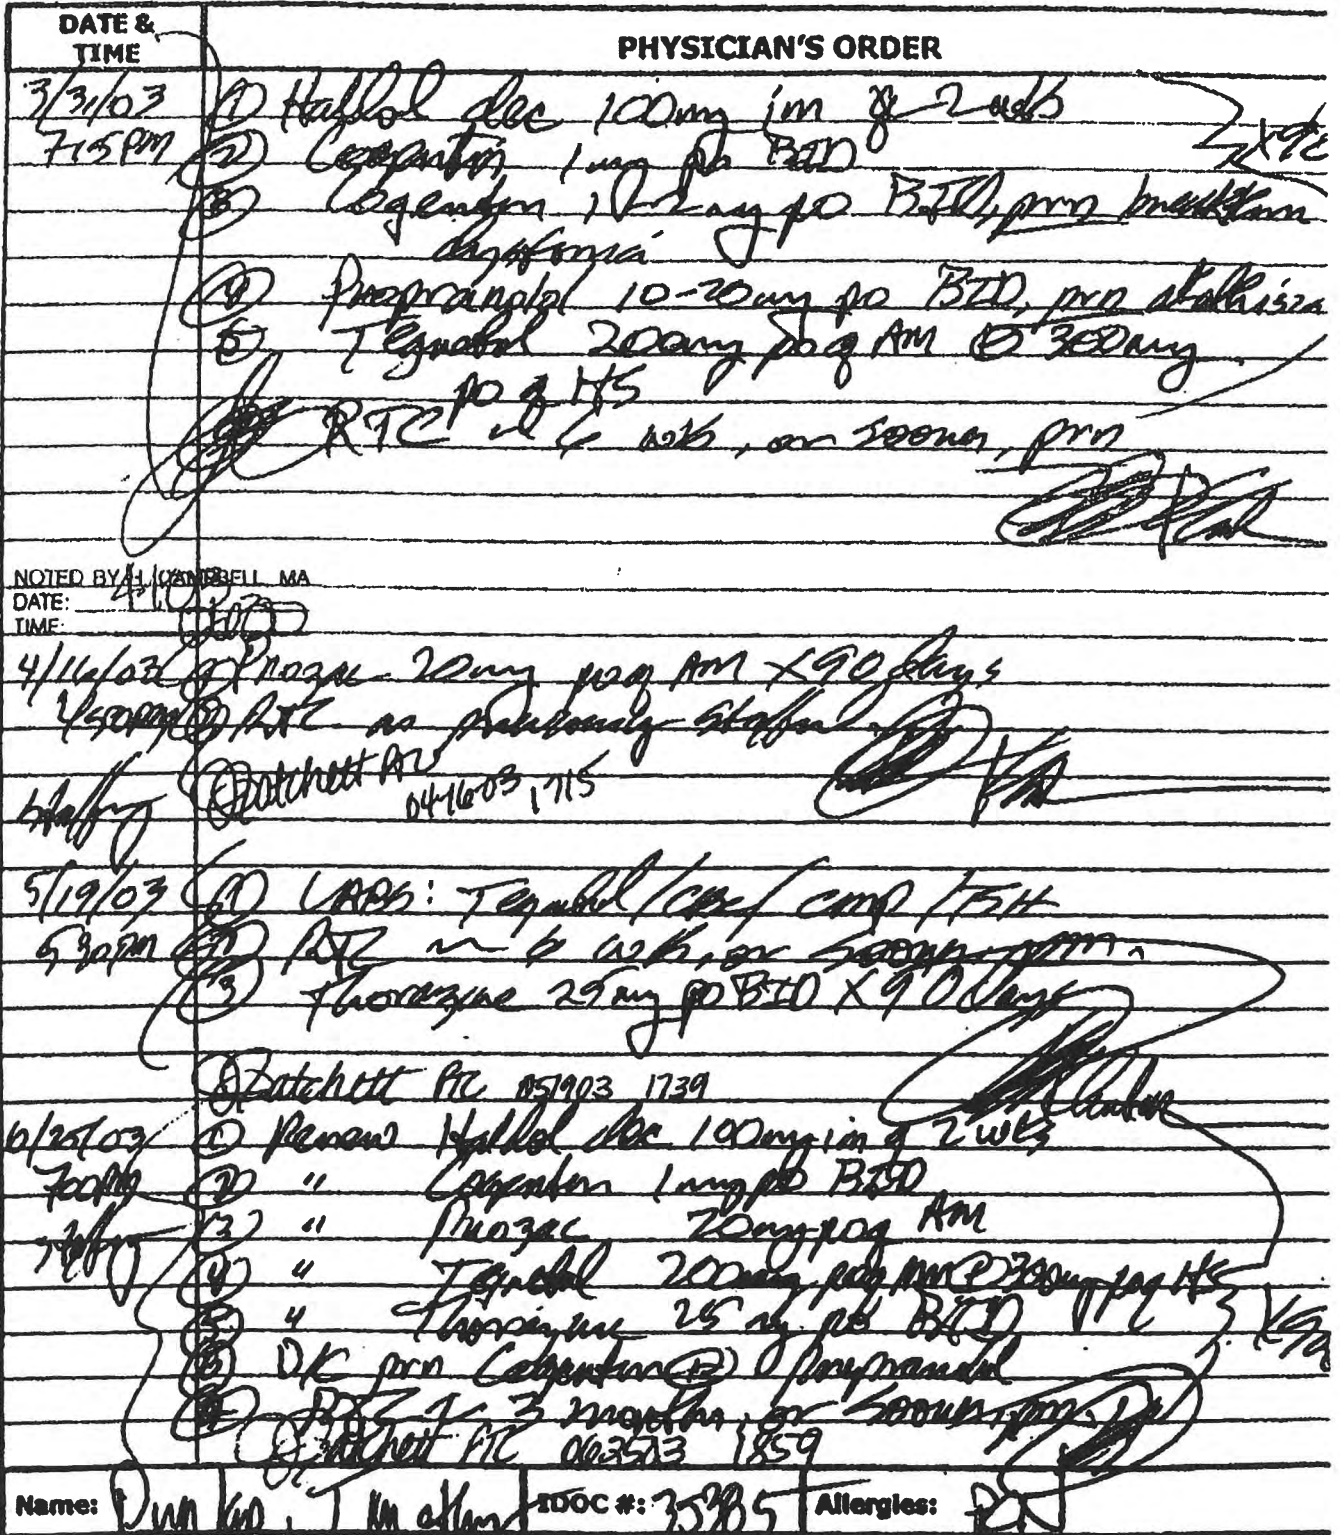 DATE & TIME
PHYSICIAN'S ORDER
3/31/03 ① Haldol dec 100mg im q 2 wks
7:15 PM ② Cogentin 1mg po BID
③ Cogentin 1-2mg po BID, prn breakthru
dystonia
④ Propranolol 10-20mg po BID, prn akathisia
⑤ Tegretol 200mg po q AM 300mg
po q HS
RTC in 6 wks, or sooner, prn
NOTED BY H CAMPBELL MA
DATE:
TIME:
4/16/03 Prozac 20mg po q AM X 90 days
RTC as previously staffed
staffing Batchett
04-16-03 1715
5/19/03 ① LABS: Tegretol/CBC/CMP/TSH
5:30PM ② RTC in 6 wks, or sooner, prn.
③ Thorazine 25mg po BID X 90 days
Batchett 051903 1739
6/25/03 ① Renew Haldol dec 100mg im q 2 wks
700PM ② " Cogentin 1mg po BID
staffing ③ " Prozac 20mg po q AM
④ " Tegretol 200mg po q AM 300mg po q HS
⑤ " Thorazine 25 mg po BID
D/C prn Cogentin propranolol
RTC in 3 months, or sooner, prn.
Batchett 1859
Name: IDOC #: Allergies: